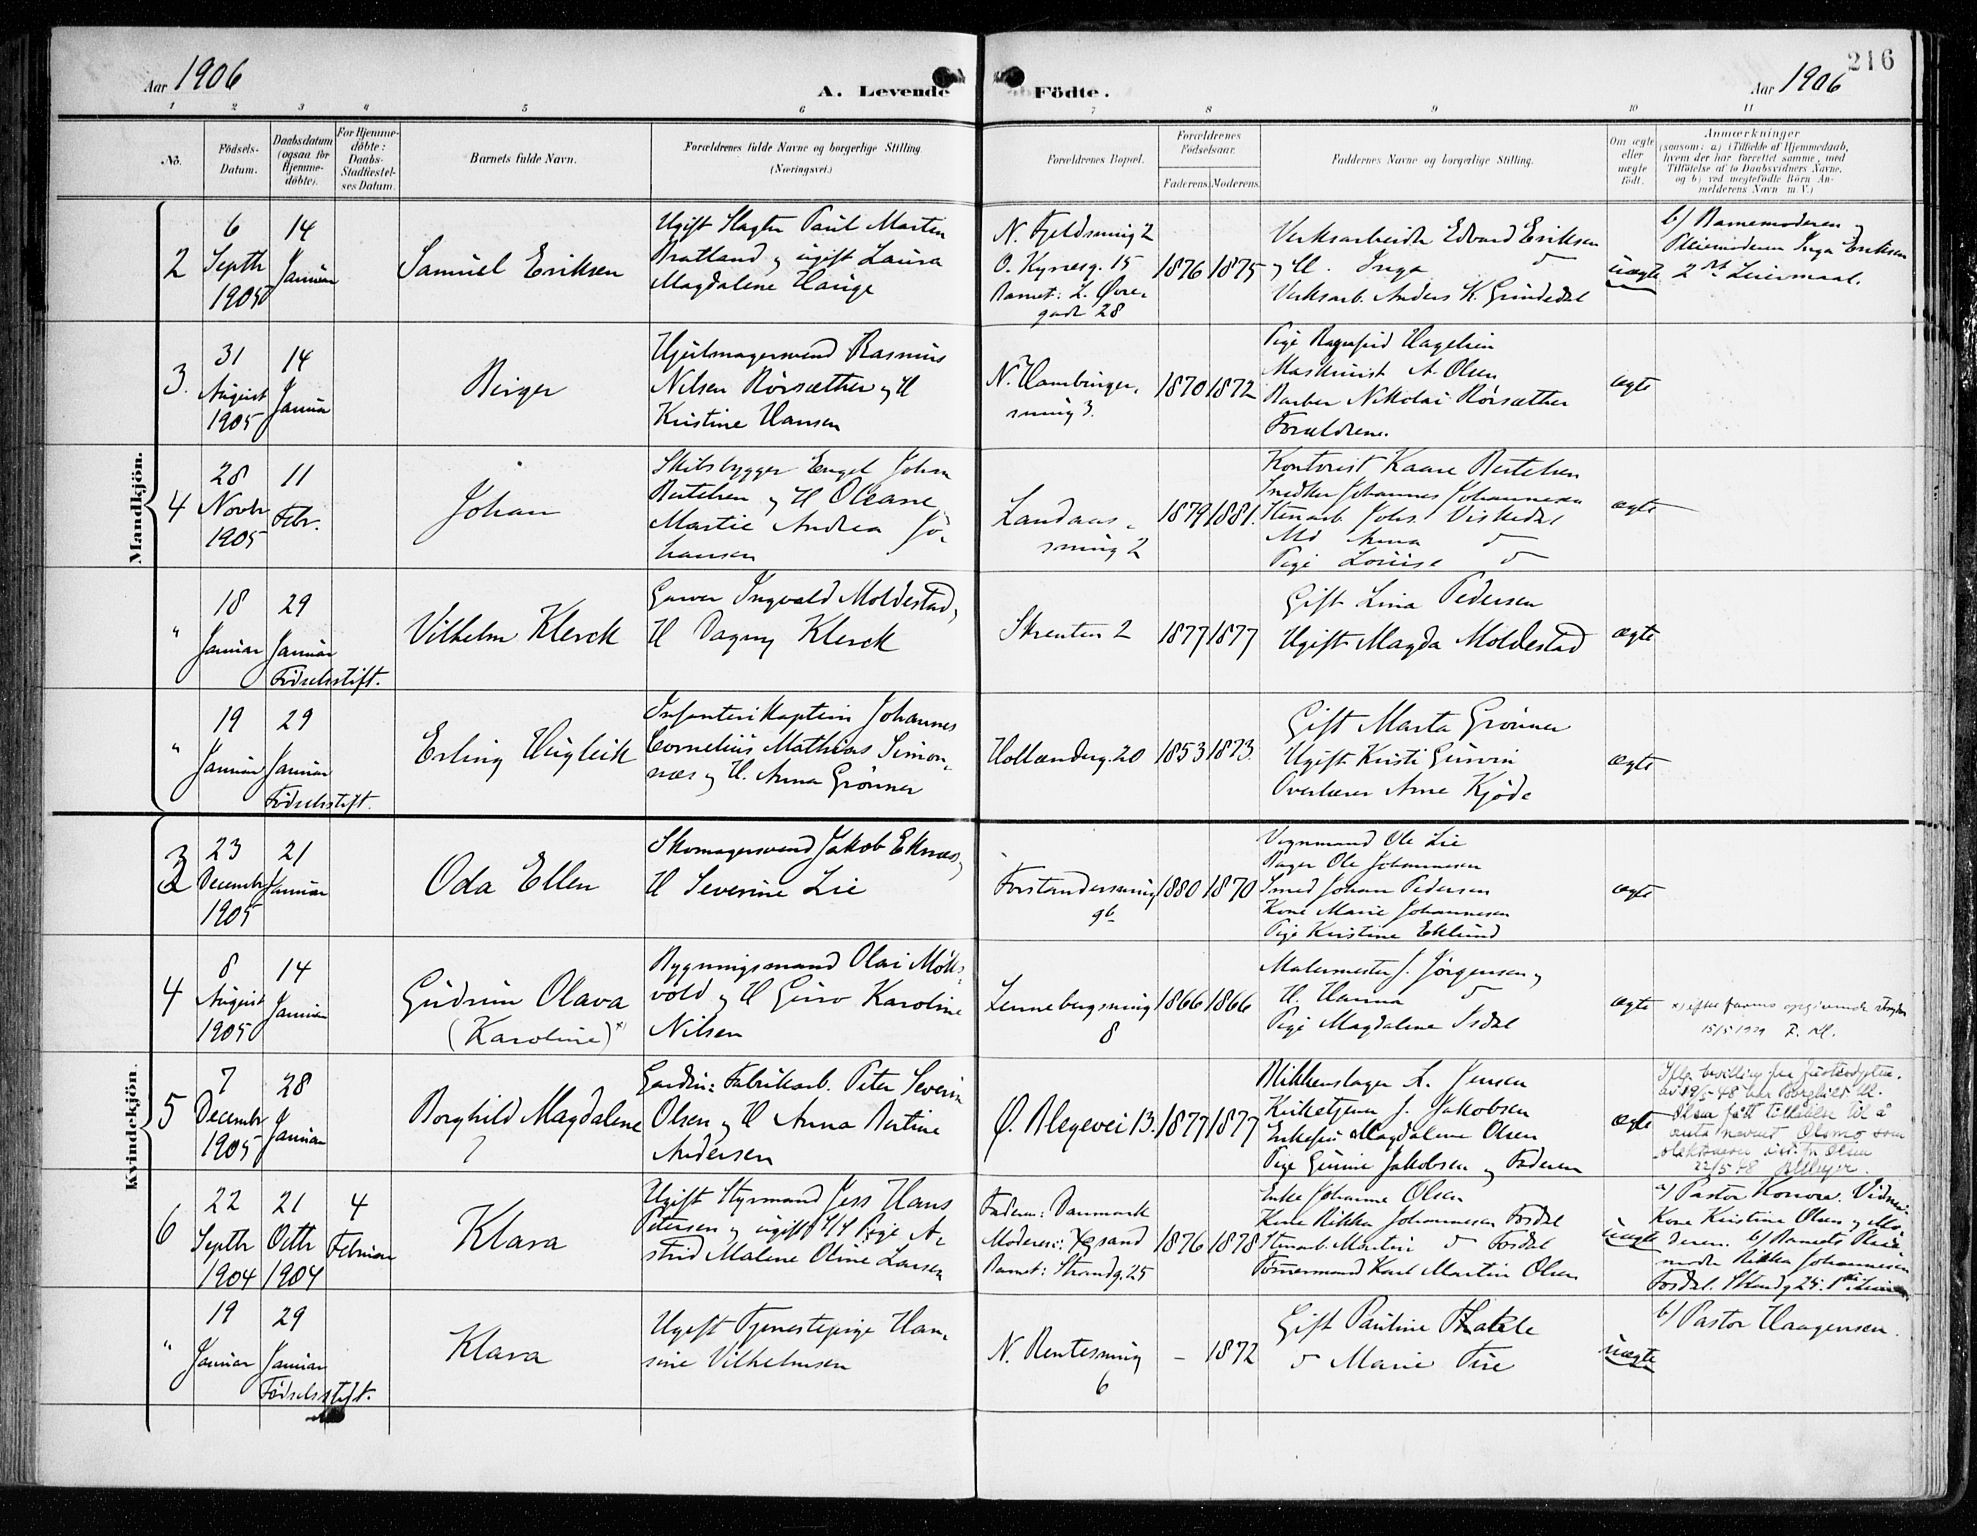 216
Aar 1906
A. Levende Födte.
Aar 1906
1 2 3 4 5 6 7 8 9 10 11
No.
Födsels-
Datum.
Daabsdatum
(ogsaa for
Hjemme-
döbte).
For Hjemme-
döbte:
Daabs-
Stadfæstel-
ses Datum.
Barnets fulde Navn.
Forældrenes fulde Navne og borgerlige Stilling.
(Næringsvei.)
Forældrenes Bopæl.
Forældrenes
Födselsaar.
Faderens. Moderens.
Faddernes Navne og borgerlige Stilling.
Om ægte
eller
uægte
födt.
Anmærkninger
(saasom: a) i Tilfælde af Hjemmedaab,
hvem der har forrettet samme, med
Tilföielse af to Daabsvidners Navne,
og b) ved uægtefödte Börn An-
melderens Navn m. V.)
Mandkjön.
2
6
Septbr
1905
14
Januar
Samuel Eriksen
Ugift Slagter Paul Martin
Bratland og ugift Laura
Magdalene Hauge
N. Fjeldsmug 2
O. Kynesg. 15
Barnet: L. Øvre-
gade 28
1876
1875
Verksarbeider Edvard Eriksen
og H. Inga do
Verksarb. Anders K. Grindedal
uægte
b) Barnemoderen,
Pleiemoderen Inga Eriksen
2det Leiermaal.
3.
31
August
1905
14
Januar
Birger
Hjulmagersvend Rasmus
Nilsen Rörsæther og H
Kristine Hansen
N. Hamburger-
smug 3.
1870
1872
Pige Ragnfrid Hagelien
Maskinist A. Olsen
Barber Nikolai Rörsæther
Forældrene.
ægte
4
28
Novbr
1905
11
Febr.
Johan
Skibsbygger Engel Johan
Bertelsen og H Oleane
Martie Andrea Jo-
hansen
Landaas-
smug 2
1879
1881.
Kontorist Kaare Bertelsen
Snedker Johannes Johannesen
Stenarb. Johs. Viskedal
Md Anna do
Pige Louise do
ægte
"
18
Januar
29
Januar
Födselsstift.
Vilhelm Klerck
Garver Ingvald Moldestad,
H Dagny Klerck
Skrenten 2
1877
1877
Gift Lina Pedersen
Ugift Magda Moldestad
ægte
"
19
Januar
29
Januar
Födselsstift.
Erling Hugleik
Infanterikaptein Johannes
Cornelius Mathias Simon-
næs og H. Anna Grönner
Hollænderg. 20
1853
1873.
Gift Marta Grönner
Ugift Kirsti Gurvin
Overlærer Arne Kjöde
ægte
Kvindekjön.
3
23
Decembr
1905
21
Januar
Oda Ellen
Skomagersvend Jakob Eknæs,
H Severine Lie
Forstandersmug
9b
1880
1870
Vognmand Ole Lie
Bager Ole Johannesen
Smed Johan Pedersen
Kone Marie Johannesen
Pige Kristine Eklund
ægte
4
8
August
1905
14
Januar
Gudrun Olava
(Karoline) x)
Bygningsmand Olai Möll-
vold og H Guro Karoline
Nilsen
Lennebergsmug
8
1866
1866
Malermester J. Jörgensen og
H. Hanna do
Pige Magdalene Isdal
ægte
x) efter farens opgivende
15/5 1929
5
7
Decembr
1905
28
Januar
Borghild Magdalene
Gardin: Fabrikarb. Peter Severin
Olsen og H Anna Bertine
Andersen
Ø. Blegevei 13.
1877
1877
Blikkenslager A. Jensen
Kirketjener J. Jakobsen
Enkefru Magdalene Olsen
Pige Gunne Jakobsen og Faderen
ægte
Iflg. bevilling fra Justisdeptm.
av 19/5 48 har Borghild M.
Olsen fått tillatelse til å
anta navnet Olsmo som
slektsnavn ist. for Olsen
22/5 48
6
22
Septbr
1904
21
Octbr
1904
4
Februar
Klara
Ugift Styrmand Jess Hans
Petersen og ugift Pige A-
strid Malene Oline Larsen
Faderen: Danmark
Moderen: Ygsand
Barnet: Strandg. 25
1876
1878
Enke Johanne Olsen
Kone Rikka Johannesen Fosdal
Stenarb. Martin do Fosdal
Tömmermand Karl Martin Olsen
uægte
a) Pastor Konow. Vidner:
Kone Kristine Olsen og Mo-
deren. b) Barnets Pleie-
moder Rikka Johannesen
Fosdal. Strandg 25.
"
19
Januar
29
Januar
Födselsstift.
Klara
Ugift Tjenestepige Han-
sine Vilhelmsen
N. Bentesmug
6
–
1872
Gift Pauline
do Marie Tue
uægte
b) Pastor Haagensen.